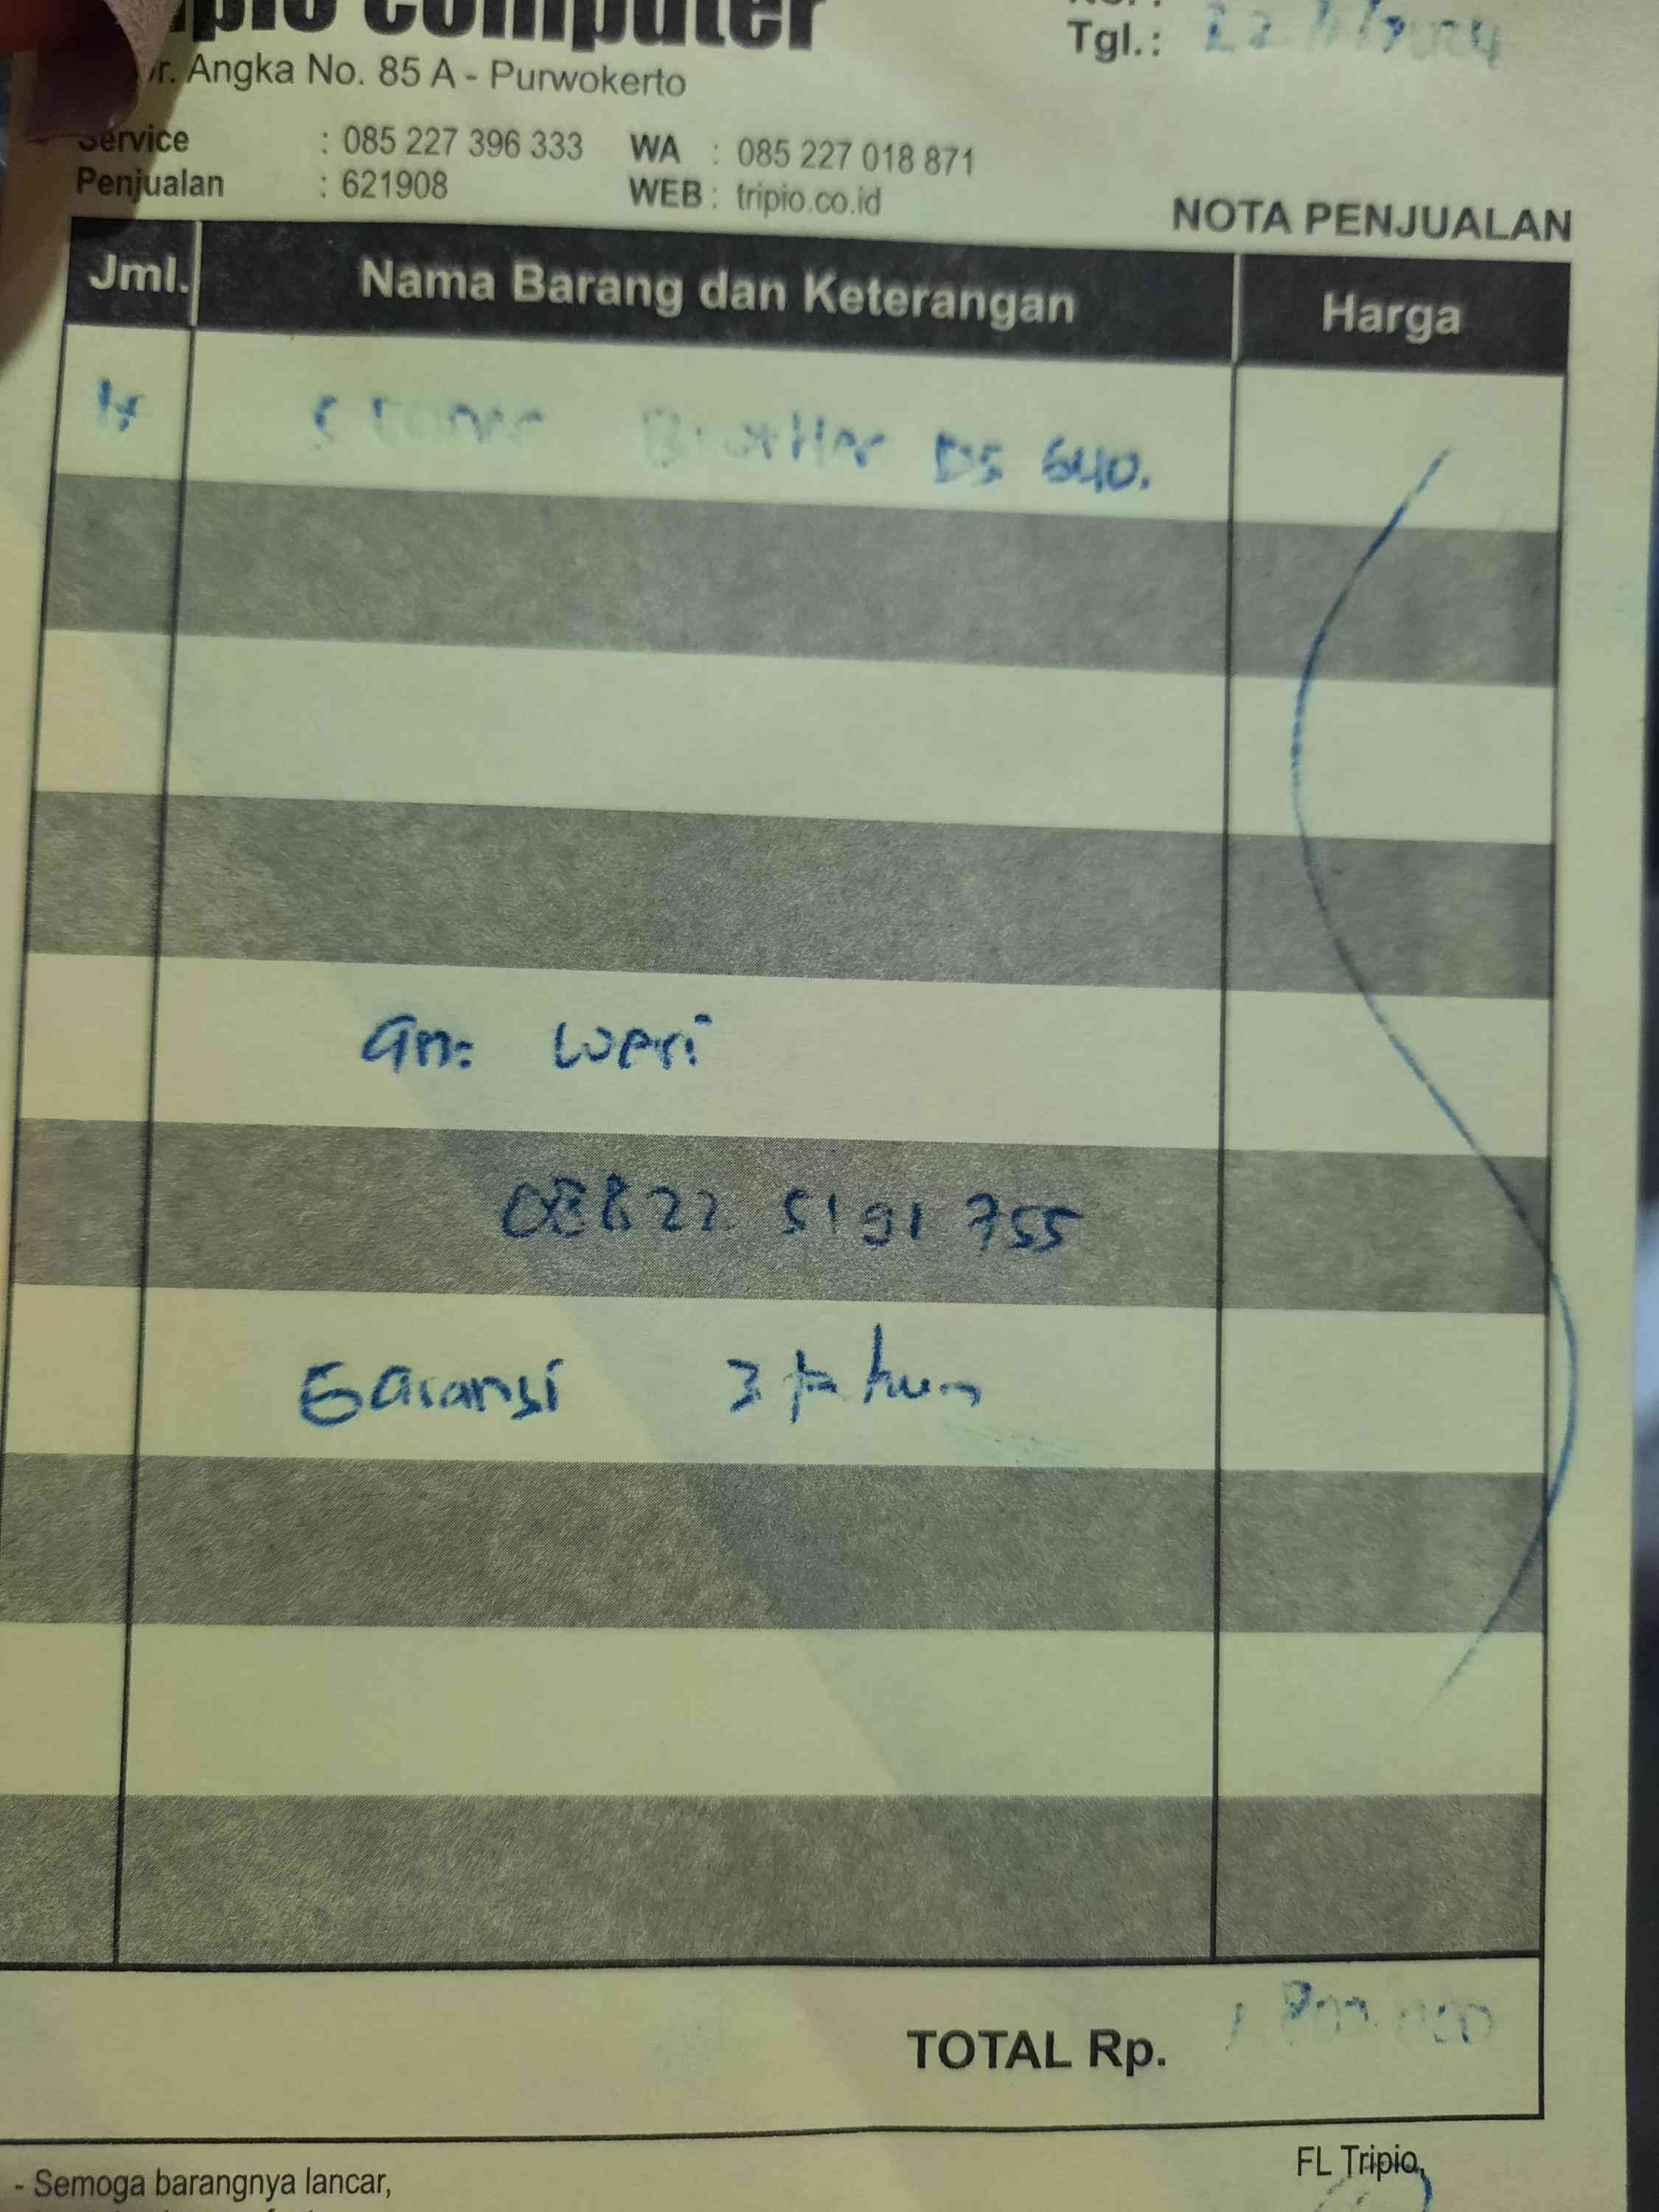 Computer
Tgl.: 22/11/2024
Dr. Angka No. 85 A - Purwokerto
Service : 085 227 396 333 WA : 085 227 018 871
Penjualan : 621908 WEB : tripio.co.id
NOTA PENJUALAN
Jml. Nama Barang dan Keterangan Harga
1x Scaner Brother DS 640.
an:
08822 5191 755
Garansi 3 tahun
TOTAL Rp. 1.800.000
- Semoga barangnya lancar,
FL Tripio,